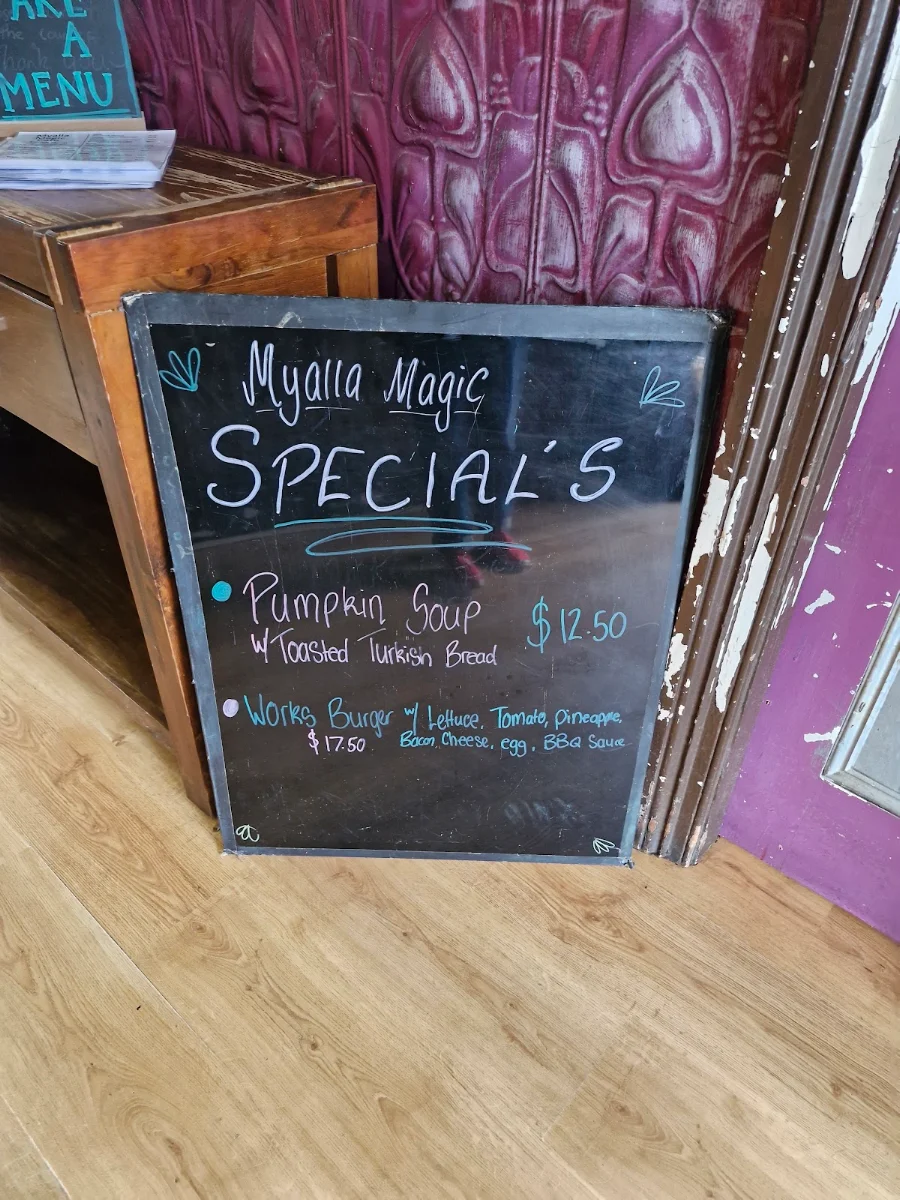 A
MENU
Myalla Magic
SPECIAL'S
Pumpkin Soup $12.50
w/ Toasted Turkish Bread
Works Burger w/ Lettuce, Tomato, Pineapple,
$17.50 Bacon, Cheese, egg, BBQ Sauce